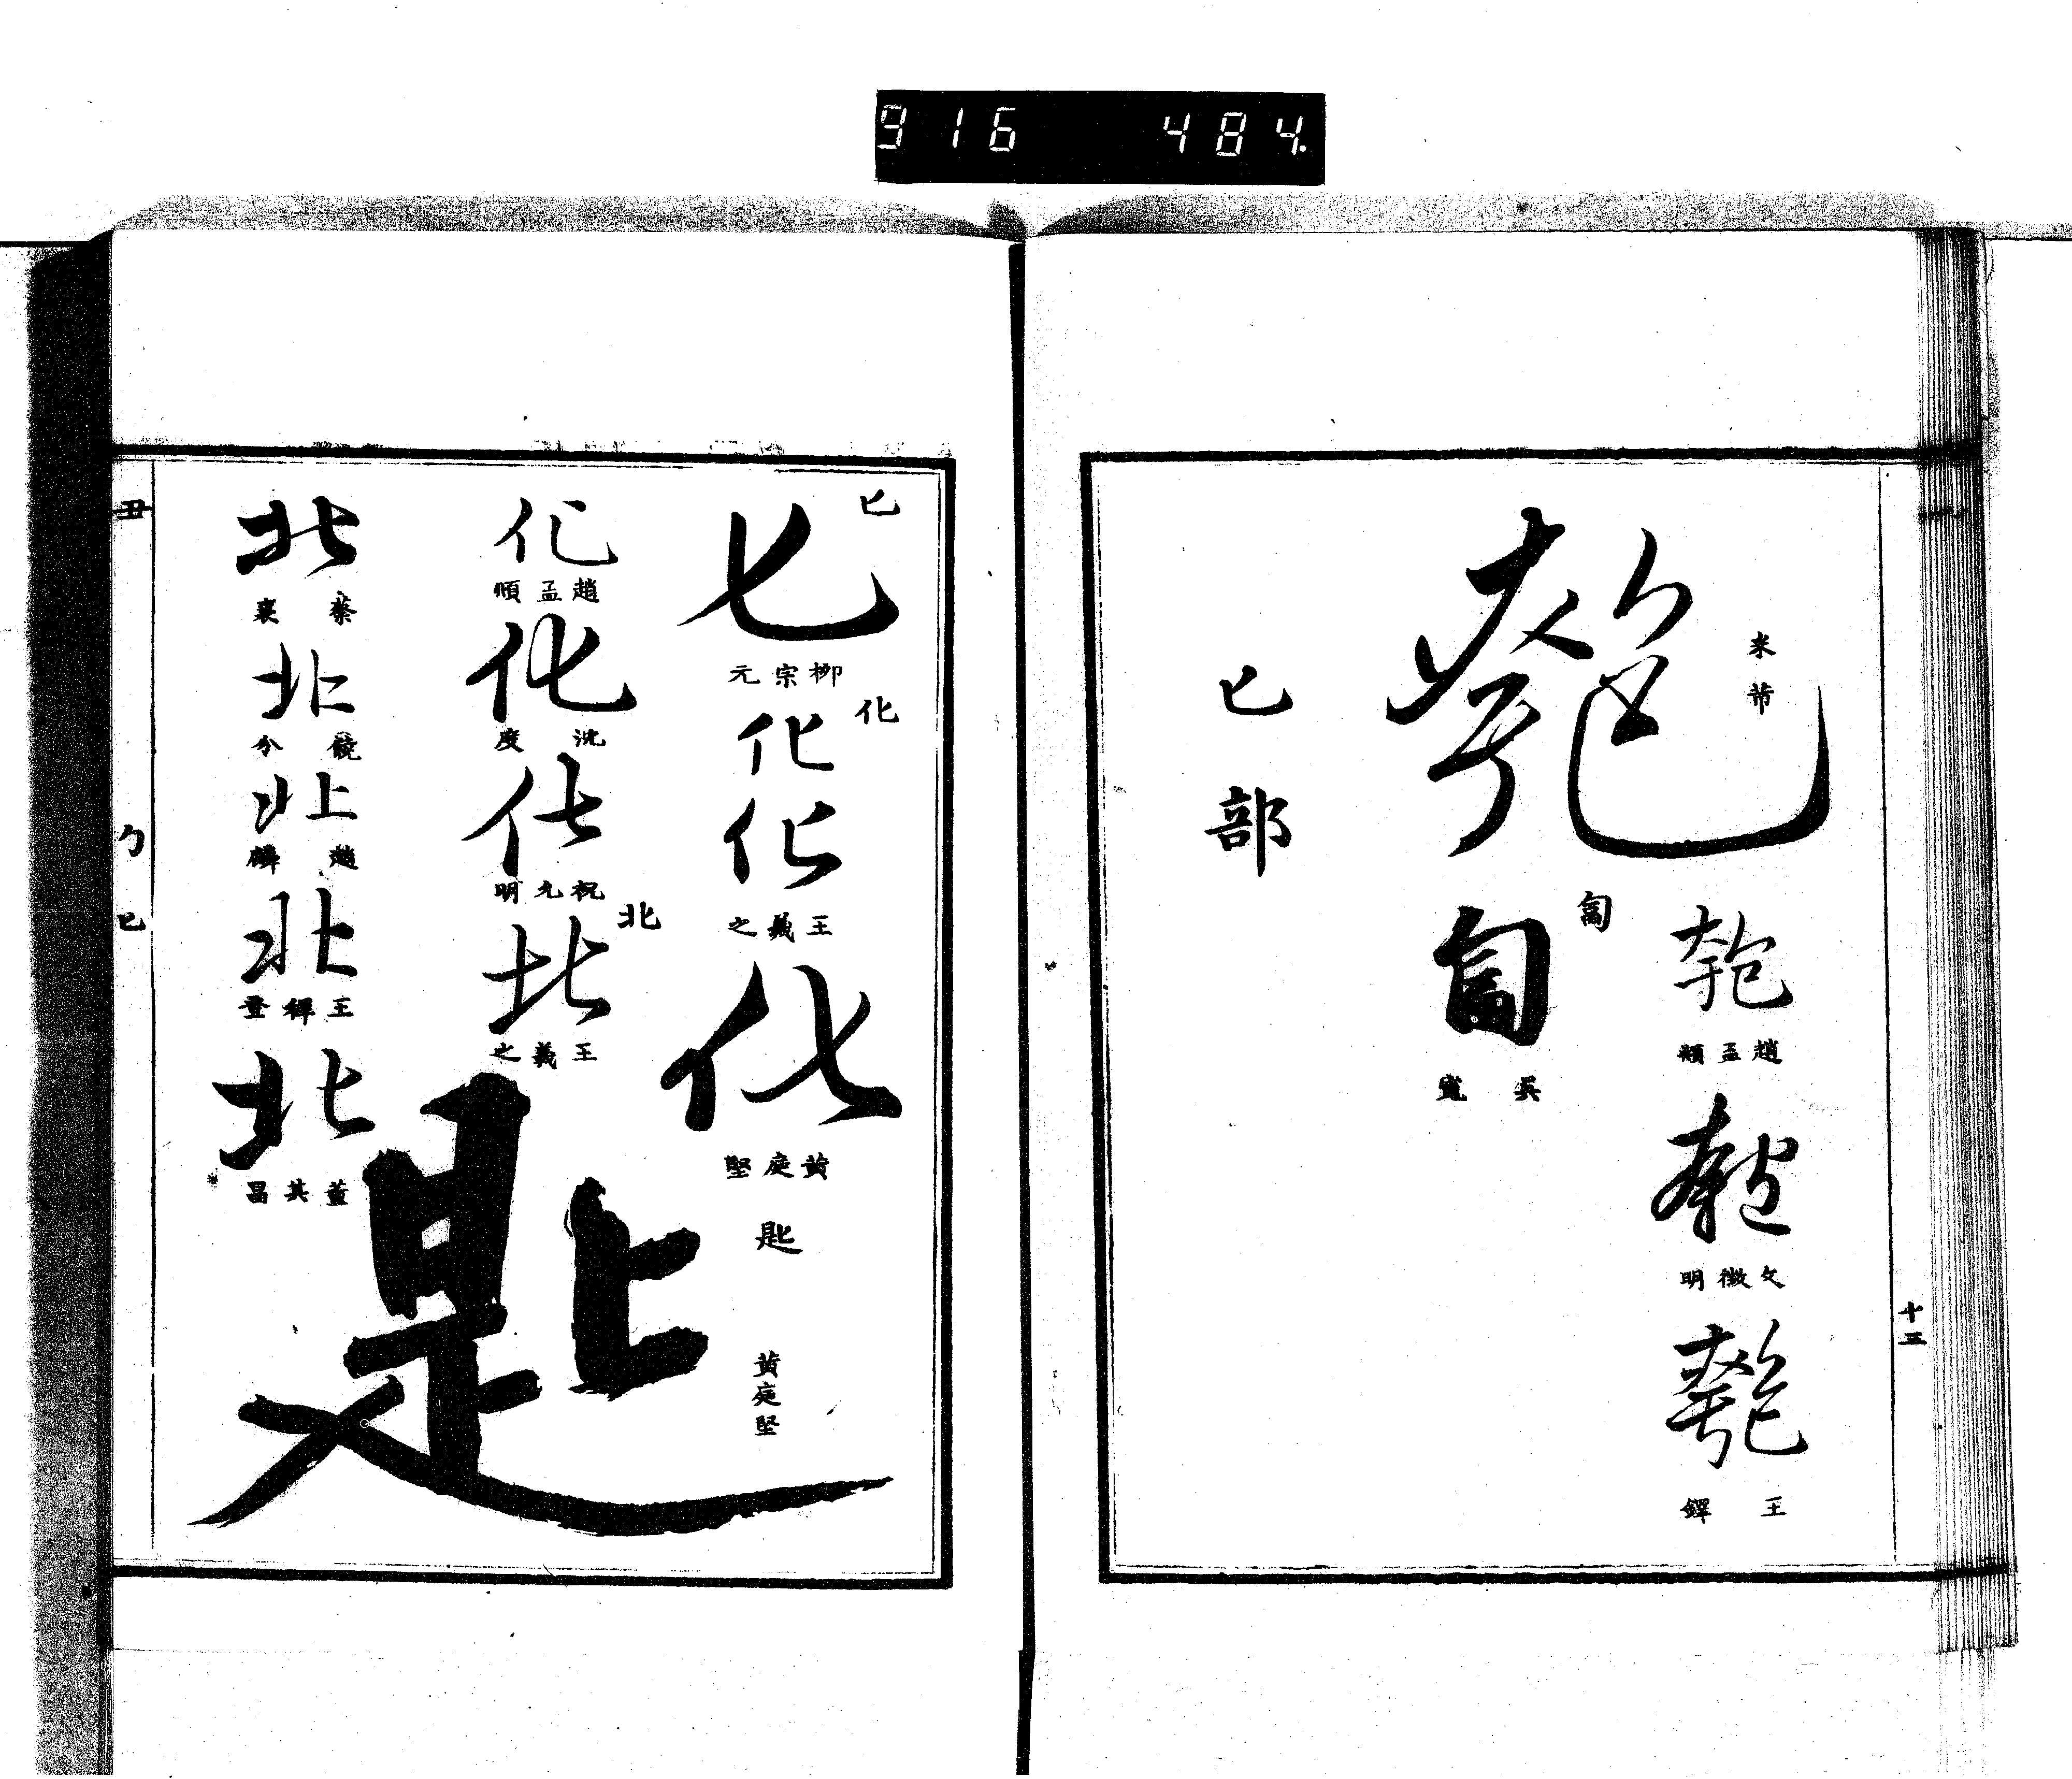 916 484.
匏
米芾
匏
趙孟頫
匏
文徵明
匏
王鐸
匐
匐
吳寬
匕部
十三
匕
匕
柳宗元
化
化
化
王羲之
化
黃庭堅
匙
匙
黃庭堅
化
趙孟頫
化
沈度
化
祝允明
北
北
王羲之
北
蔡襄
北
饒介
北
趙麟
北
王穉登
北
董其昌
丑
勹
匕